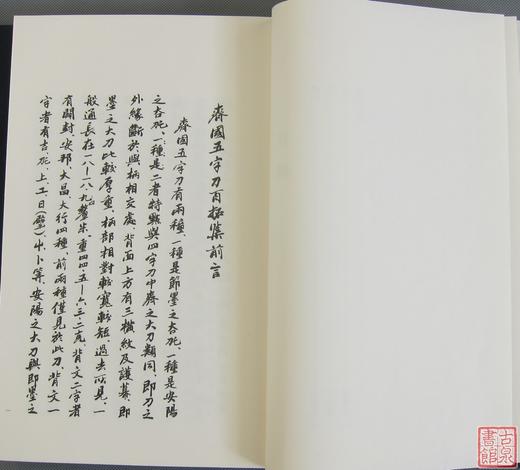 齊國五字刀百拓集前言
齊國五字刀有兩種、一種是節墨之杏㐌、一種是安陽
之杏㐌、一種是二者特點與四字刀中齊之大刀類同、即刀之
外緣斷於與柄相交處、背面上方有三橫紋及護幕、即
墨之大刀比較厚重、柄部相對較寬較短、過去所見、一
般通長在一八—一八.九釐米、重四四.五—六三.二克、背文二字者
有開封、安邦、大昌、大行四種、前兩種僅見於此刀、背文一
字者有吉、㐌、上、工、日(璧)、屮、卜等、安陽之大刀與即墨之
古泉
書館